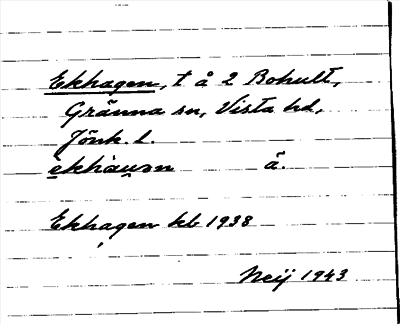 Ekhagen, t å 2 Bohult,
Gränna sn, Vista hd,
Jönk. l.
èkhàu̯ən å.
Ekhagen kb 1938
Neij 1943